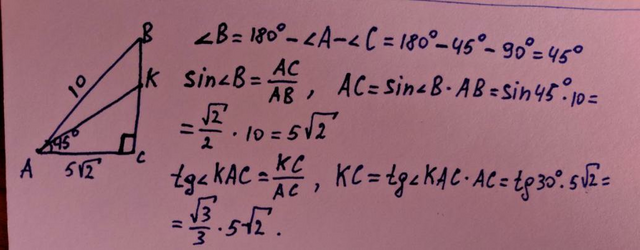 B
10
K
45°
A
5√2
C
∠B = 180° - ∠A - ∠C = 180° - 45° - 90° = 45°
sin∠B = AC/AB, AC = sin∠B · AB = sin45° · 10 =
= √2/2 · 10 = 5√2
tg∠KAC = KC/AC, KC = tg∠KAC · AC = tg30° · 5√2 =
= √3/3 · 5√2.